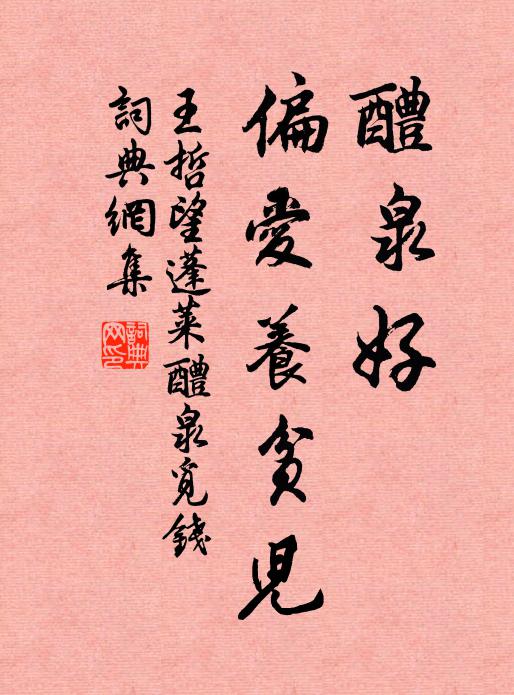 醴泉好
偏愛養貧兒
王哲望蓬萊醴泉覓錢
詞典網集
詞典網印